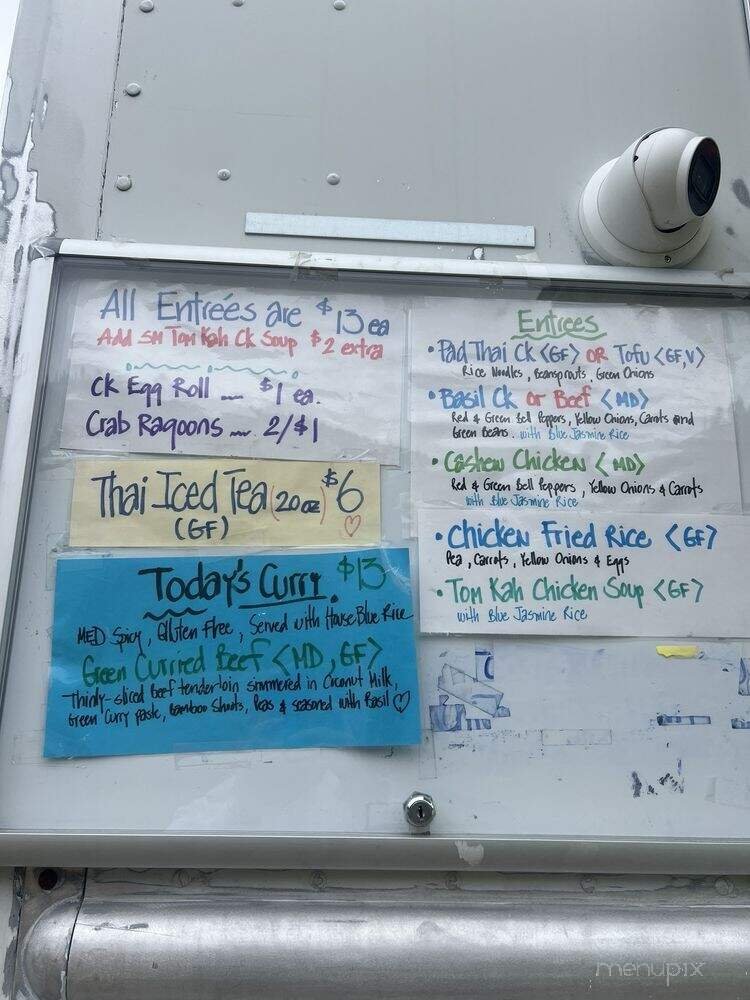 All Entrées are $13 ea
Add SM Tom Kah Ck Soup $2 extra
Ck Egg Roll $1 ea.
Crab Ragoons 2/$1
Thai Iced Tea (20 oz) $6
(GF)
Today's Curry. $13
MED Spicy, Gluten Free, Served with House Blue Rice
Green Curried Beef <MD, GF>
Thinly-sliced Beef tenderloin simmered in Coconut Milk,
Green Curry paste, Bamboo Shoots, Peas & seasoned with Basil
Entrees
• Pad Thai Ck <GF> OR Tofu <GF,V>
Rice Noodles, Beansprouts, Green Onions
• Basil Ck or Beef <MD>
Red & Green Bell Peppers, Yellow Onions, Carrots and
Green Beans. with Blue Jasmine Rice
• Cashew Chicken <MD>
Red & Green Bell Peppers, Yellow Onions & Carrots
with Blue Jasmine Rice
• Chicken Fried Rice <GF>
Pea, Carrots, Yellow Onions & Eggs
• Tom Kah Chicken Soup <GF>
with Blue Jasmine Rice
menupix